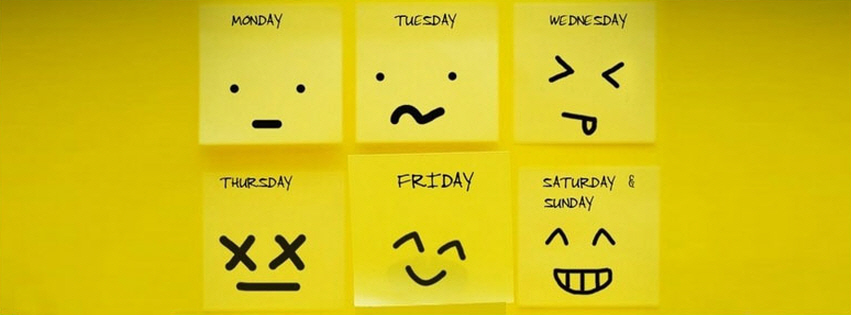 MONDAY
TUESDAY
WEDNESDAY
THURSDAY
FRIDAY
SATURDAY &
SUNDAY